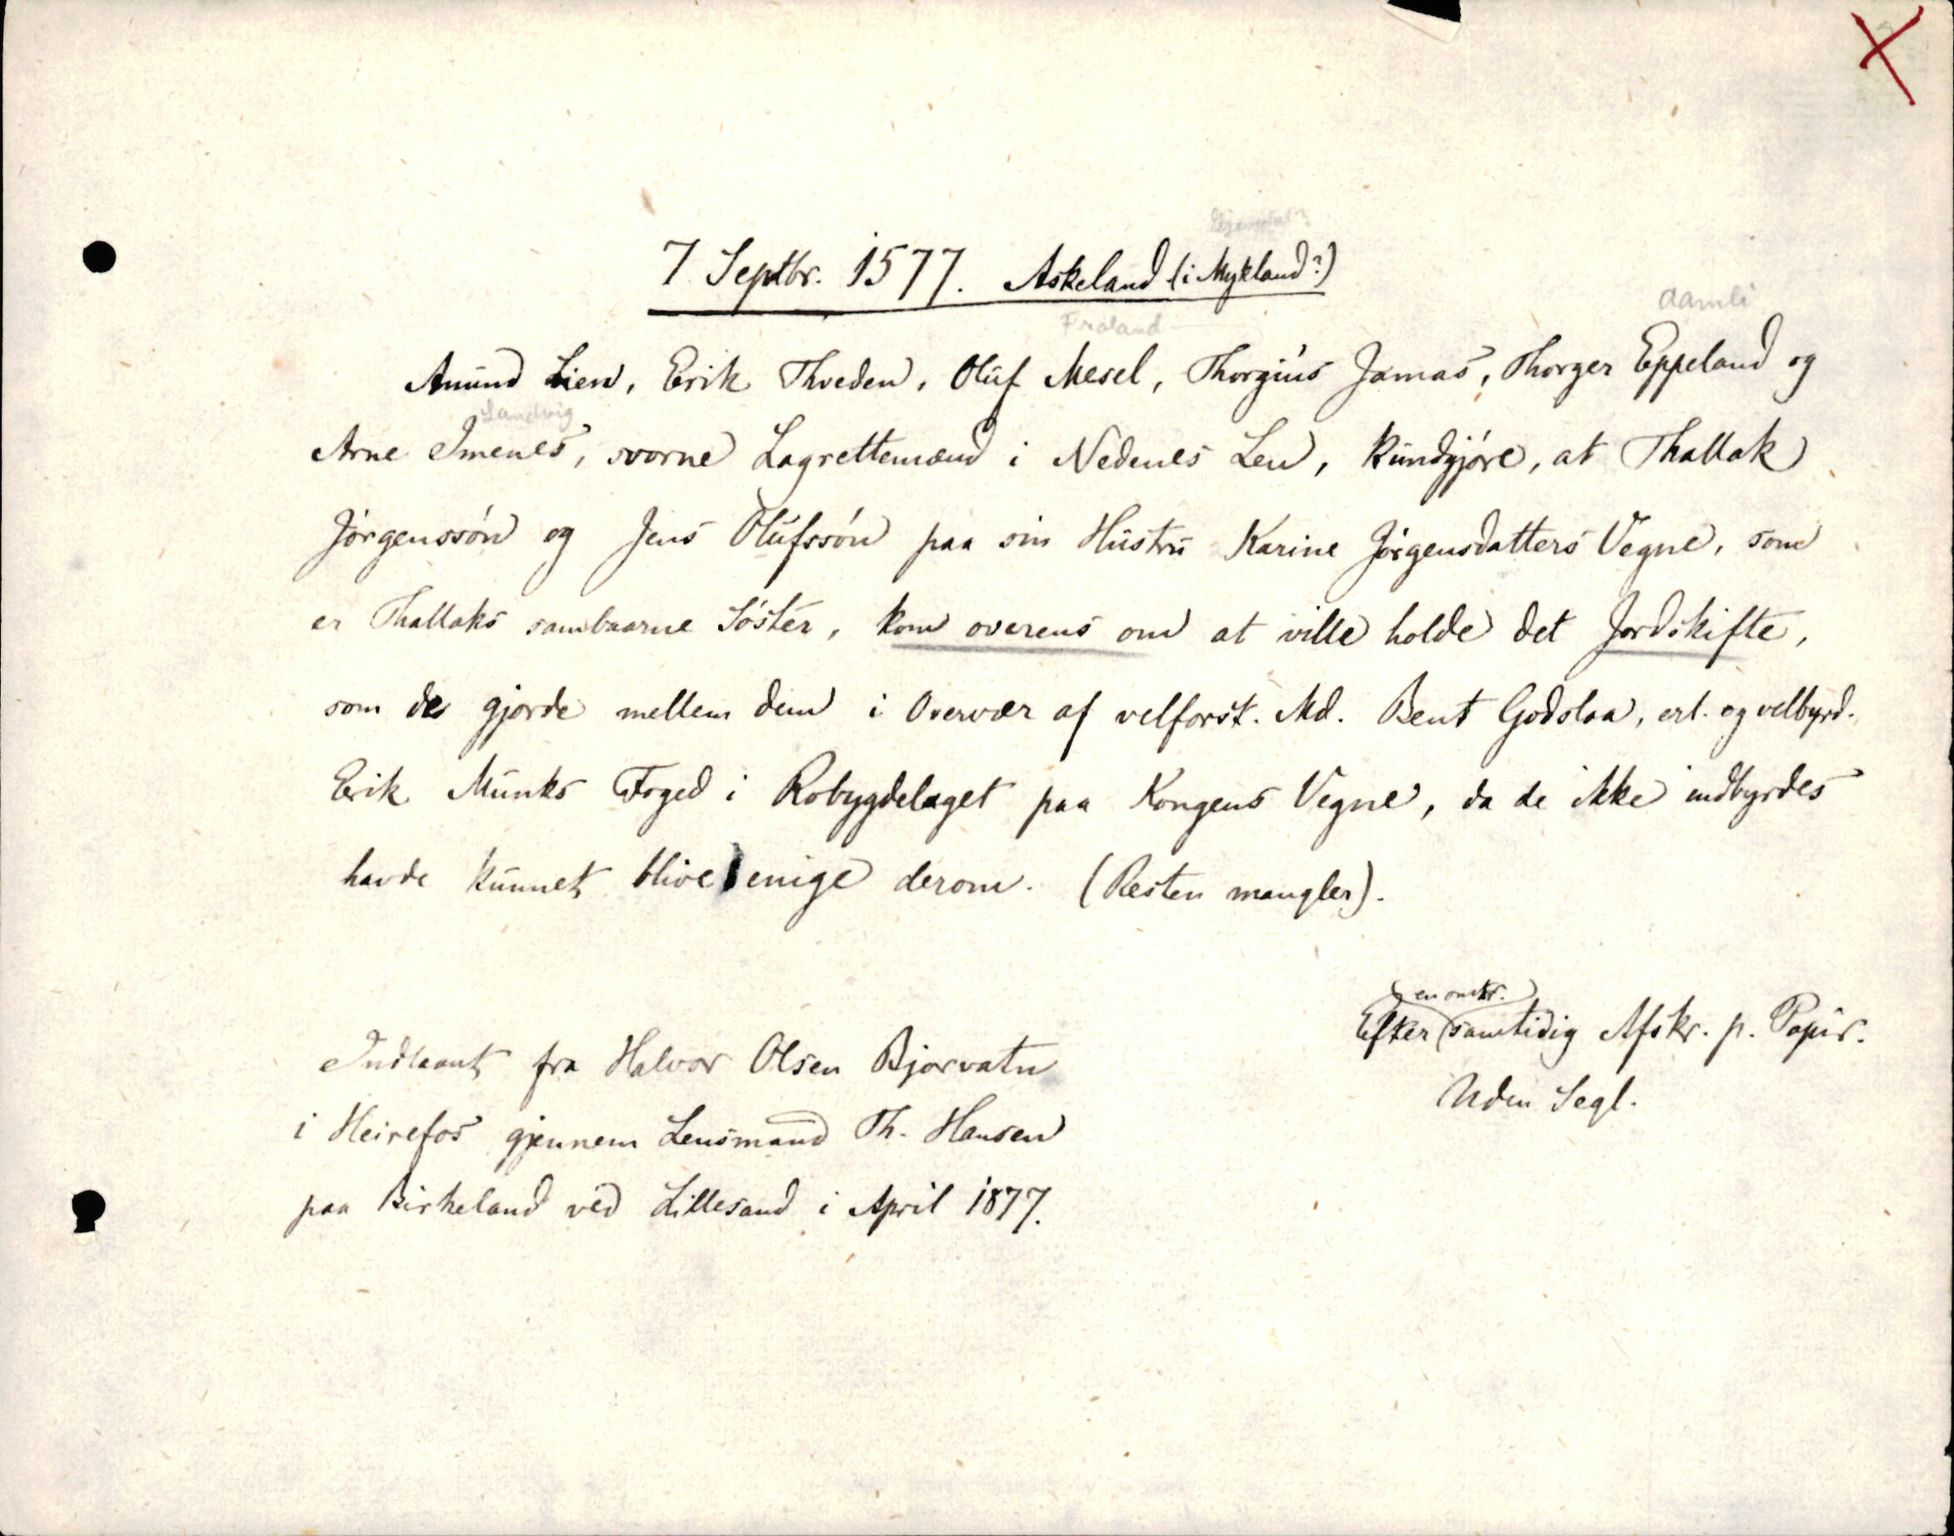 7 Septbr. 1577. Askeland (i Mykland?)
Froland
Aamli
Amund Lien, Erik Thveden, Oluf Mesel, Thorgius Jamas, Thorger Eppeland og
Landvig
Arne Imenes, svorne Lagrettemænd i Nedenes Len, kundgjóre, at Thallak
Jórgenssón og Jens Olufssón paa sin Hustru Karine Jórgensdatters Vegne, som
er Thallaks sambaarne Sóster, kom overens om at ville holde det Jordskifte,
som de gjorde mellem dem i Overvær af velforst. Md. Bent Godslaa, erl. og velbyrd.
Erik Munks Foged i Robygdelaget paa Kongens Vegne, da de ikke indbyrdes
havde kunnet blive enige derom. (Resten mangler).
(en omtr.)
Efter samtidig Afskr. p. Papir.
Uden Segl.
Indlaant fra Halvor Olsen Bjorvatn
i Heirefos gjennem Lensmand Th. Hansen
paa Birkeland ved Lillesand i April 1877.